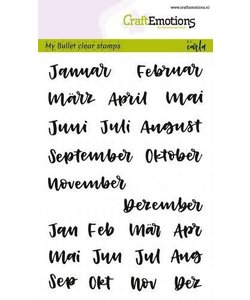 www.craftemotions.nl
CraftEmotions
My Bullet clear stamps
carla
Januar Februar
März April Mai
Juni Juli August
September Oktober
November
Dezember
Jan Feb Mär Apr
Mai Jun Jul Aug
Sep Okt Nov Dez